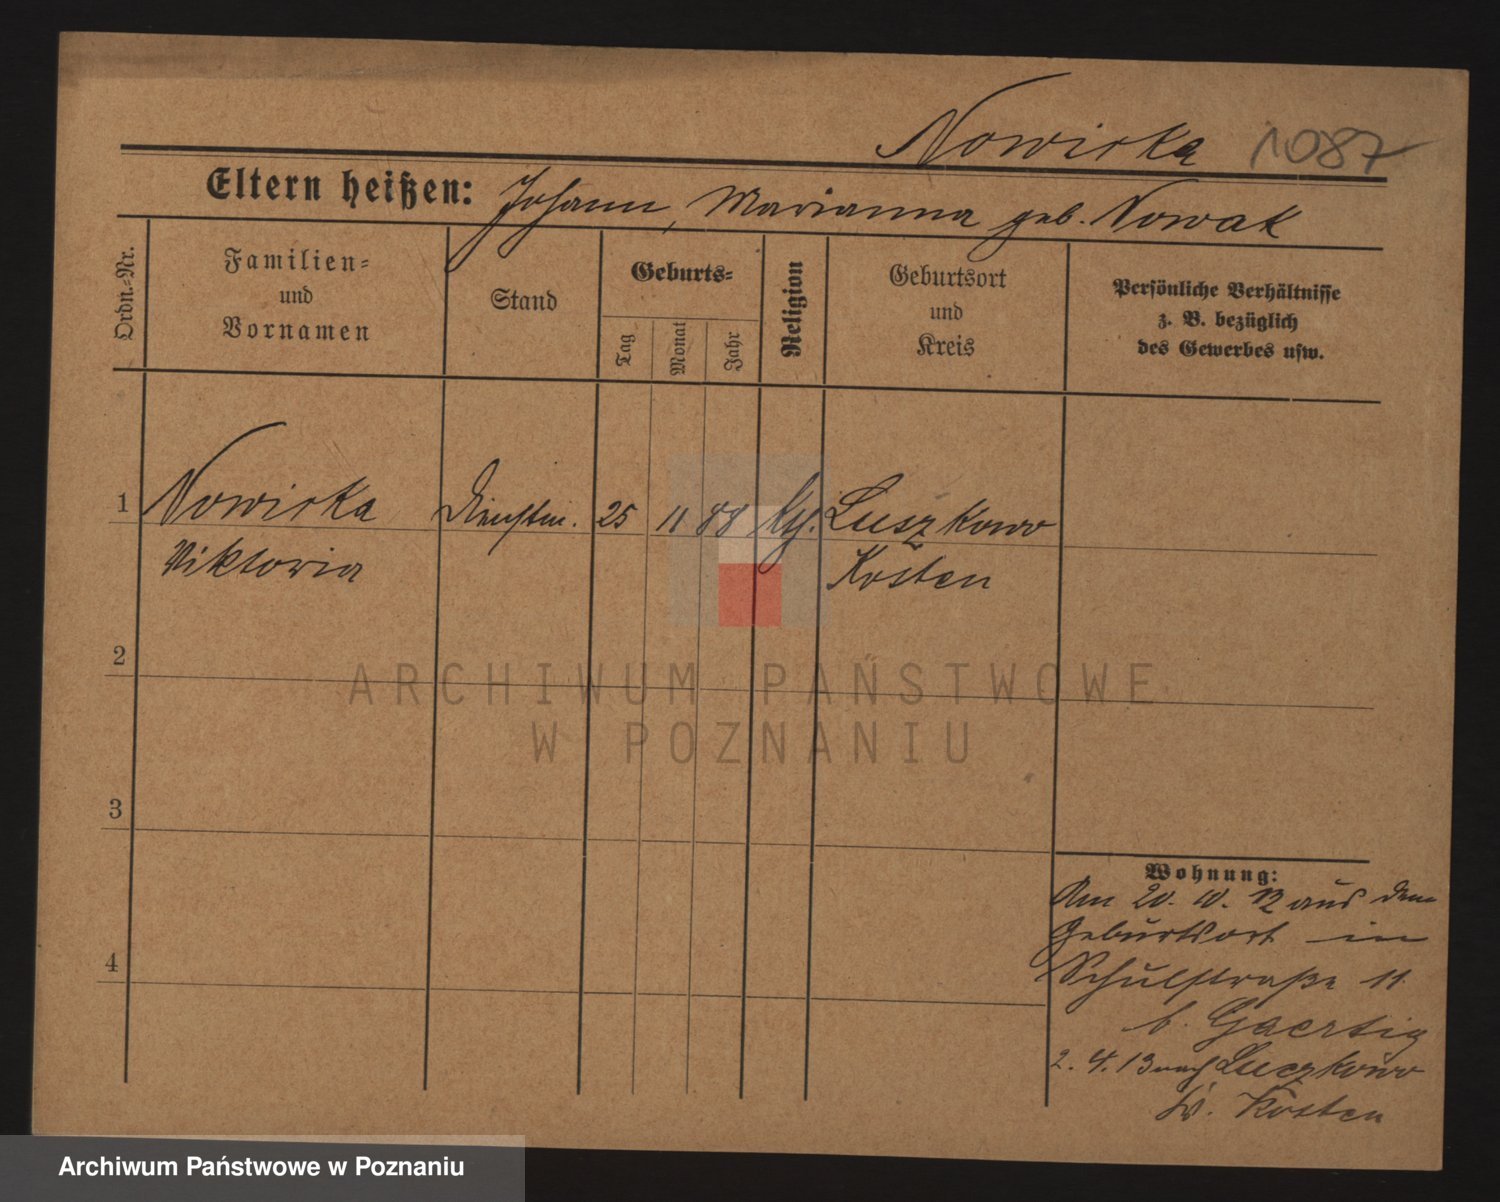 Nowicka 1087
Eltern heißen: Johann, Marianna geb. Nowak
Ordn.-Nr.
Familien-
und
Vornamen
Stand
Geburts-
Tag
Monat
Jahr
Religion
Geburtsort
und
Kreis
Persönliche Verhältnisse
z. B. bezüglich
des Gewerbes usw.
1 Nowicka Dienstm. 25 11 88 kth. Luszkowo
Viktoria Kosten
2
3
4
Wohnung:
Am 20. 10. 12 aus dem
Geburtsort in
Schulstraße 11
b. Gaertig
2. 4. 13 nach Luszkowo
Kr. Kosten
ARCHIWUM PAŃSTWOWE
W POZNANIU
Archiwum Państwowe w Poznaniu